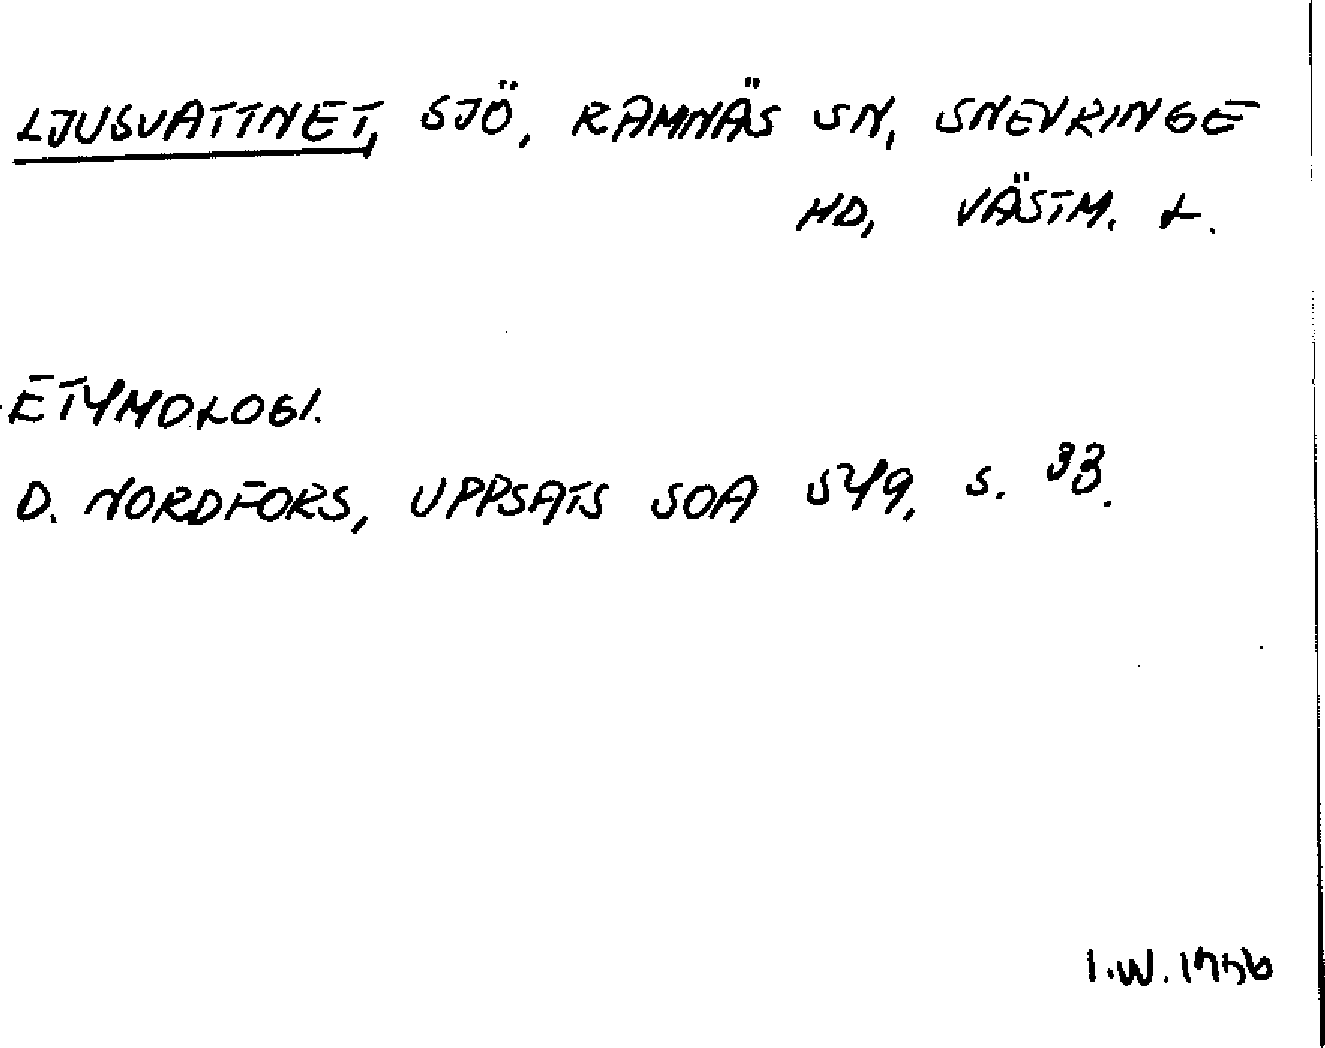 LJUSVATTNET, SJÖ, RAMNÄS SN, SNEVRINGE
HD, VÄSTM. L.
ETYMOLOGI.
D. NORDFORS, UPPSATS SOA 549, S. 33.
I.W. 1956